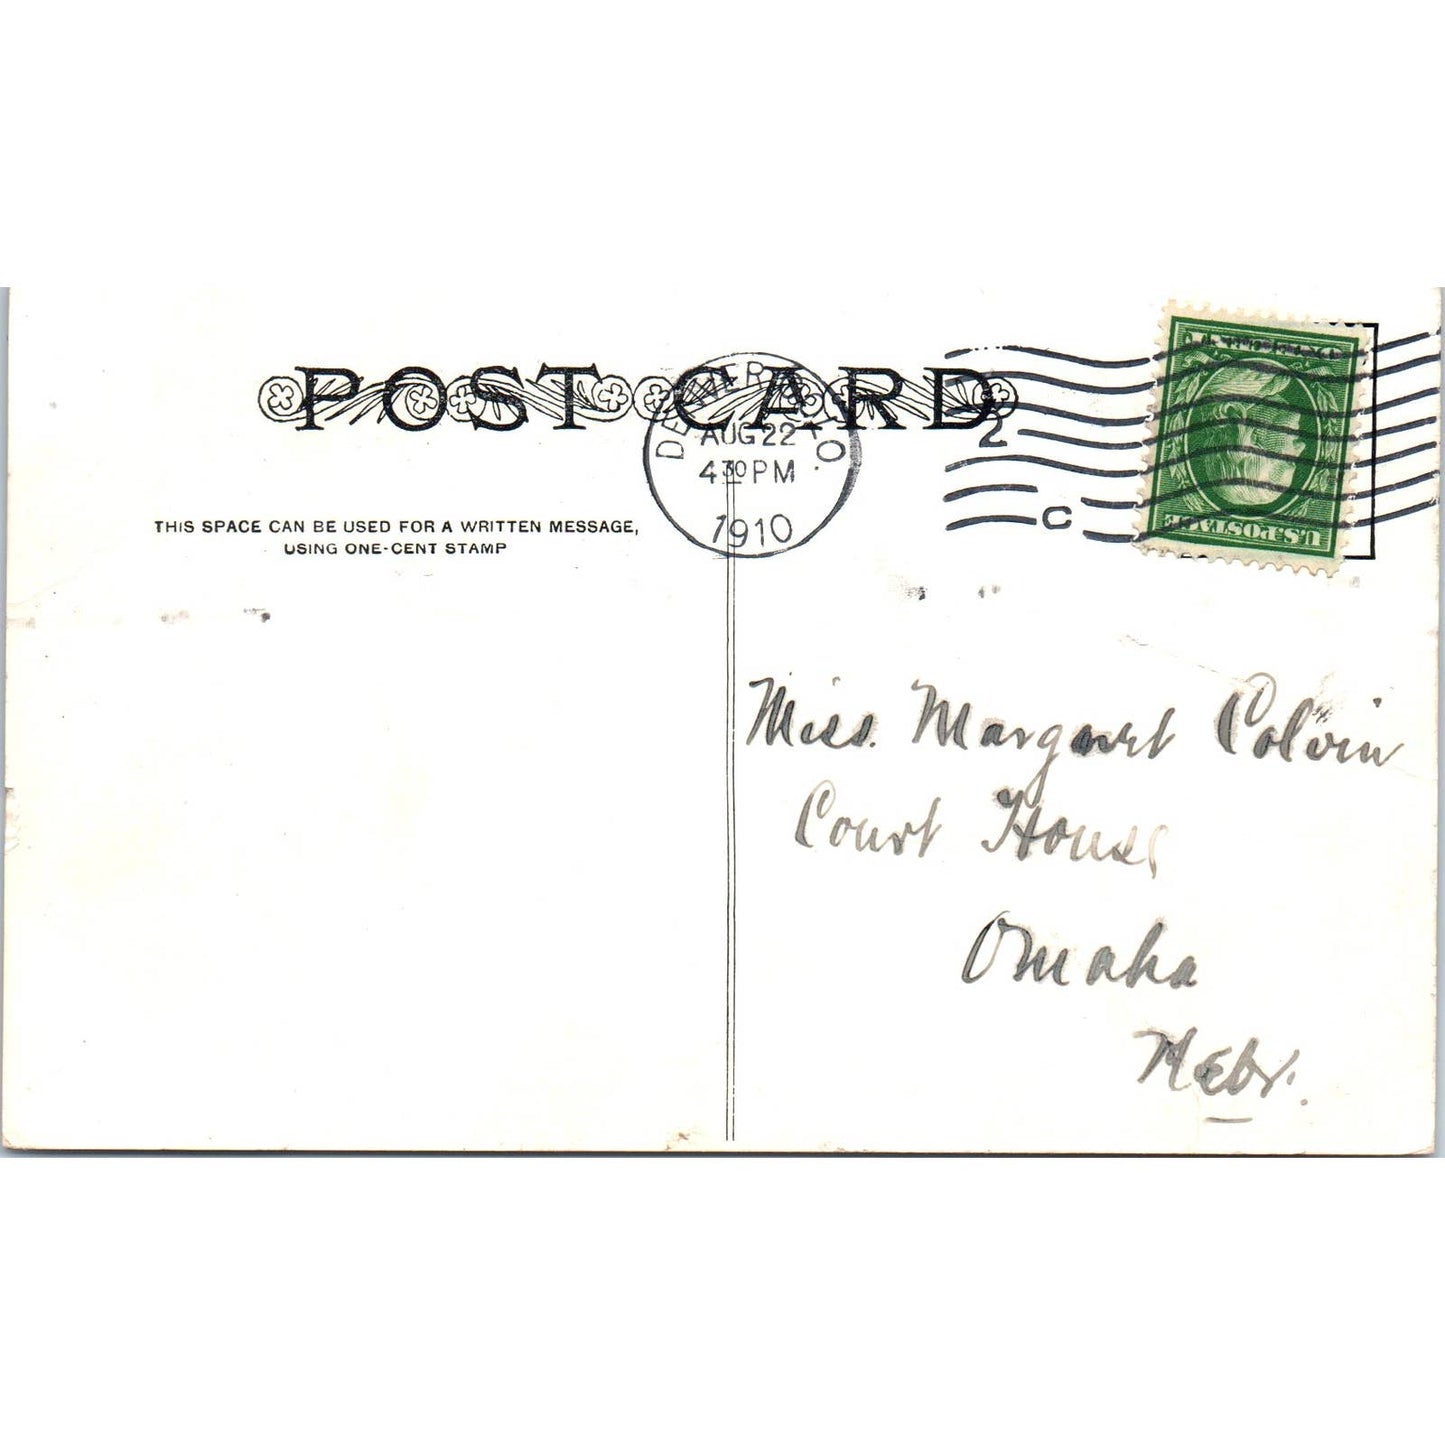 POST CARD
DENVER COLO.
AUG 22
4 30 PM
1910
2
C
U.S. POSTAGE
THIS SPACE CAN BE USED FOR A WRITTEN MESSAGE,
USING ONE-CENT STAMP
Miss. Margaret Colvin
Court House
Omaha
Nebr.